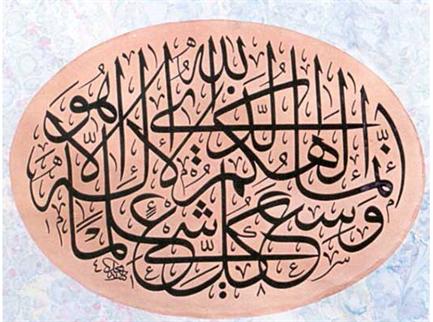 إِنَّمَا إِلٰهُكُمُ اللّٰهُ الَّذِي لَا إِلٰهَ إِلَّا هُوَ
وَسِعَ كُلَّ شَيْءٍ عِلْمًا